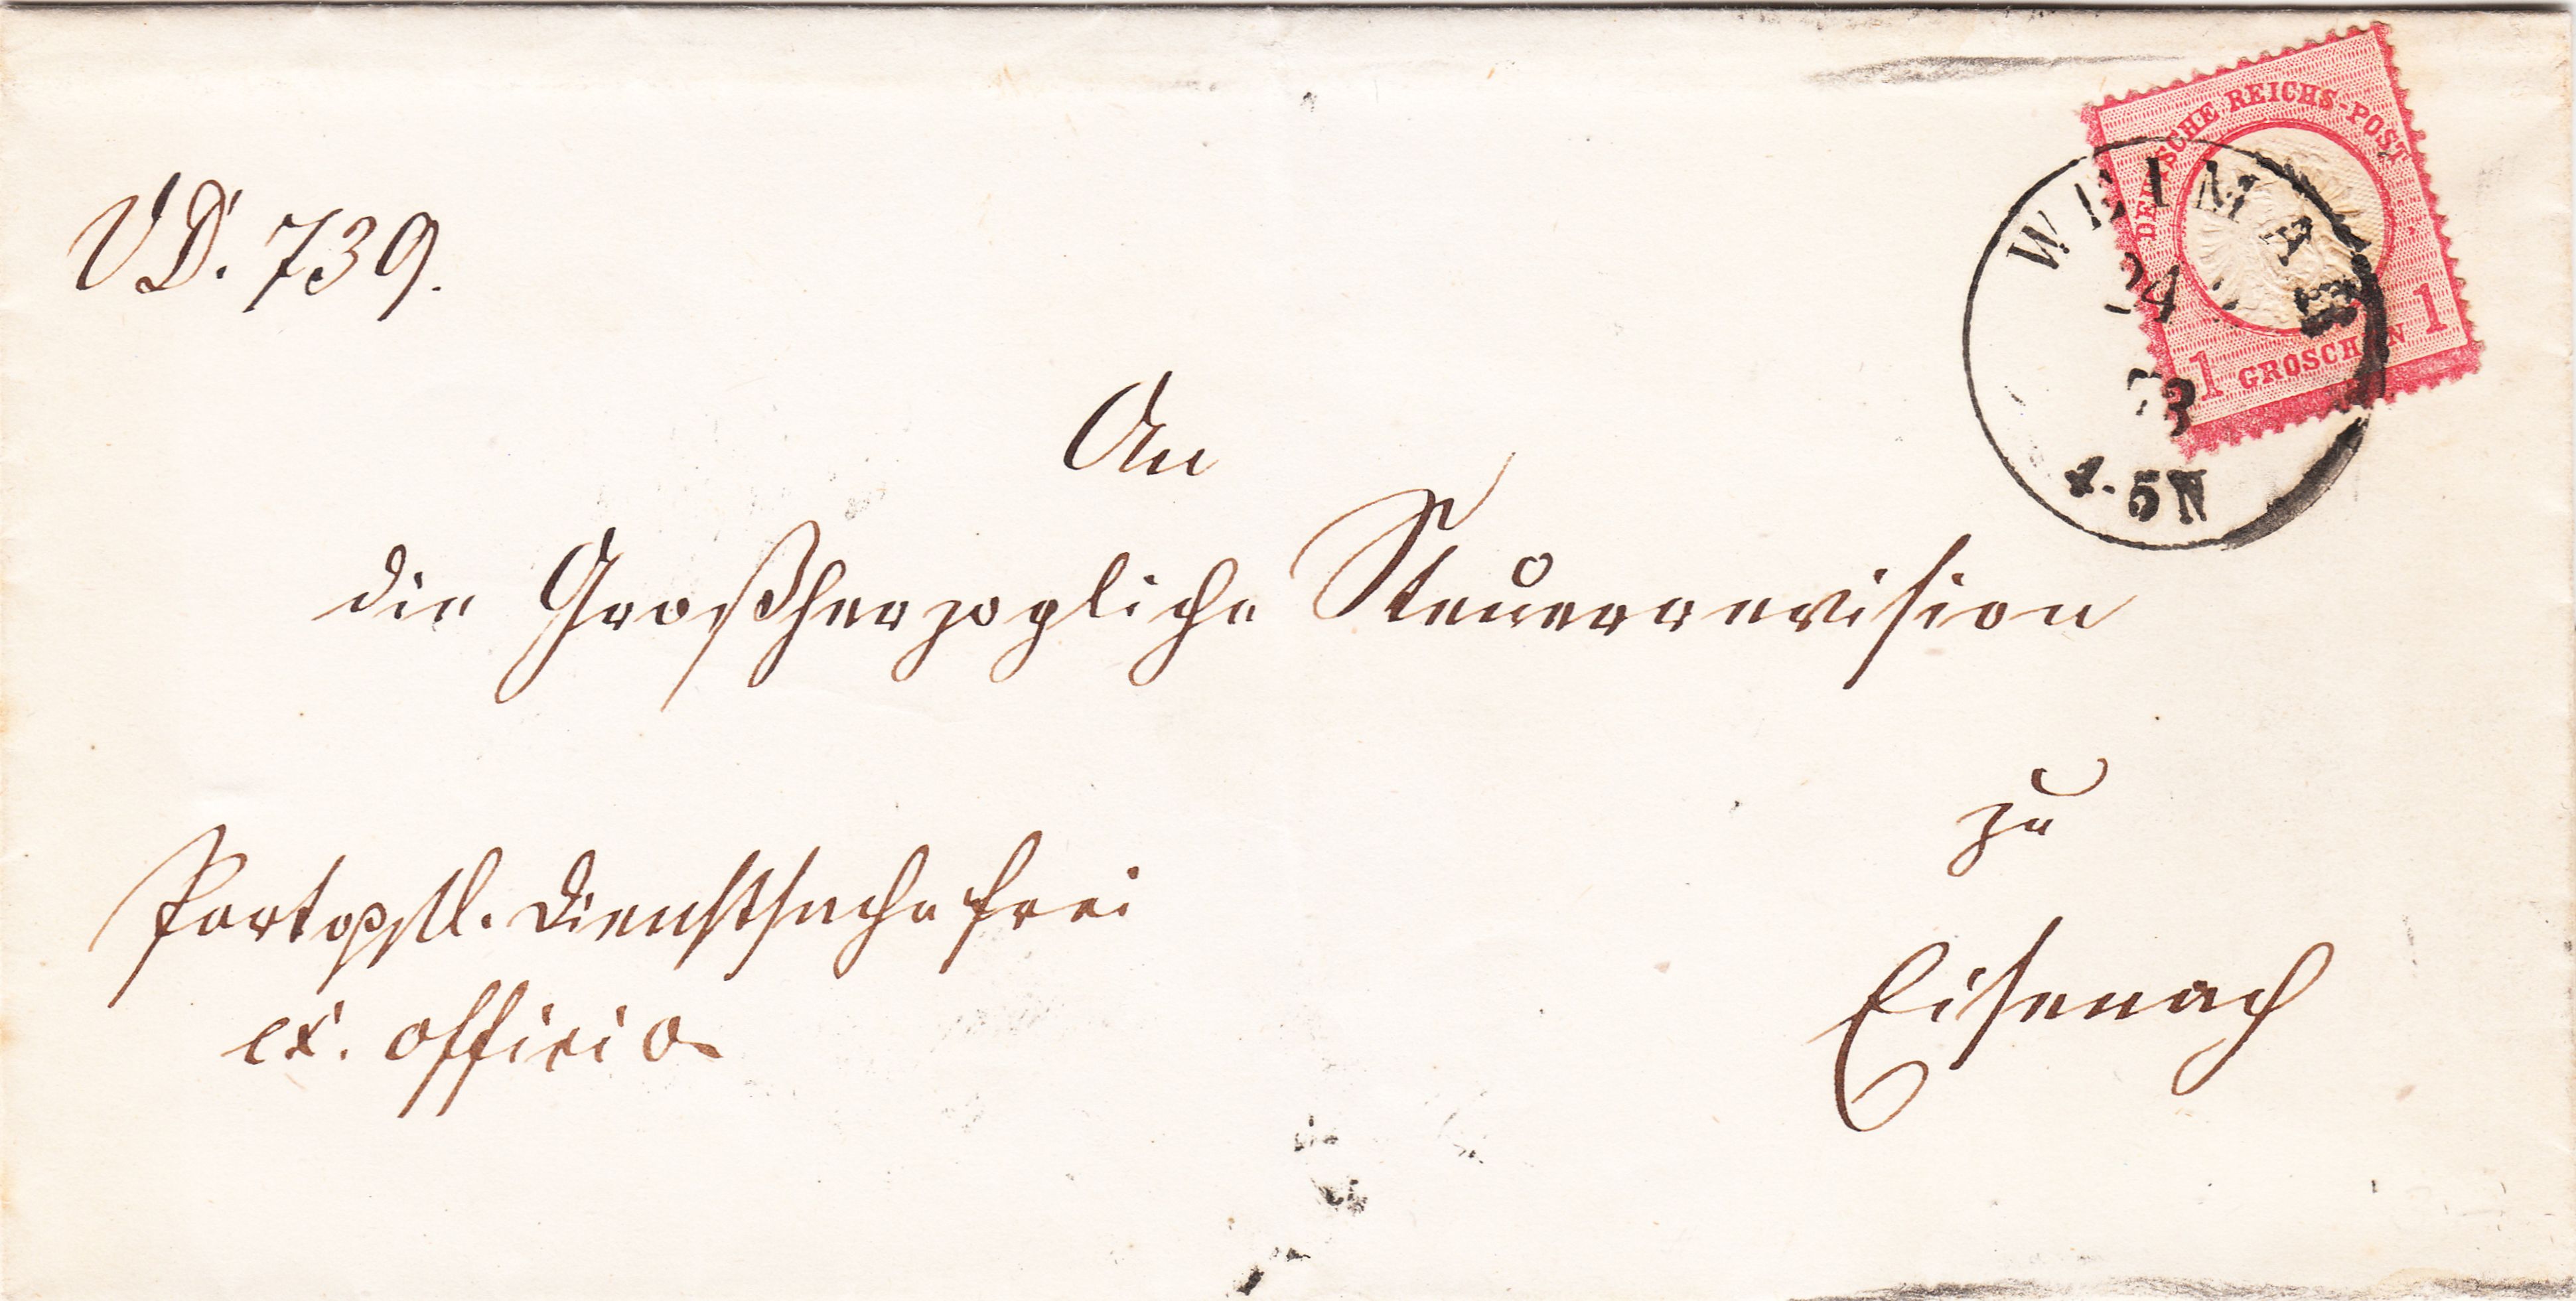 VD. 739.
DEUTSCHE REICHS-POST
1 GROSCHEN 1
WEIMAR
24
73
4-5N
An
die Großherzogliche Steuerrevision
zu
Eisenach
Portopfl. Dienstsache frei
ex. officio